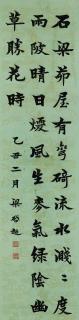 石梁茆屋有弯碕流水濺濺度
兩陂晴日煖風生麥氣綠陰幽
草勝花時
乙丑二月梁啓超